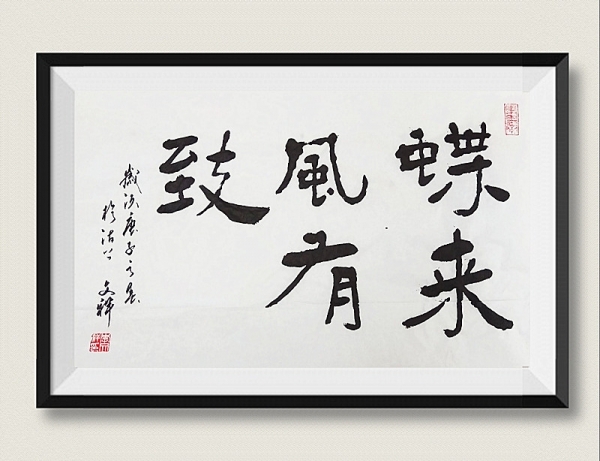 蝶来
風有
致
歲次庚子之春
於沽上 文